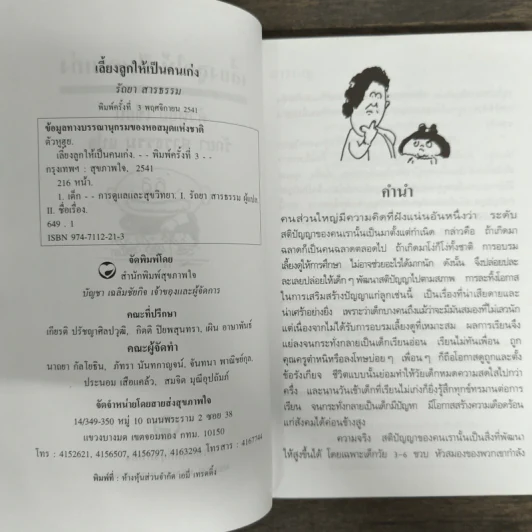 เลี้ยงลูกให้เป็นคนเก่ง
รัถยา สารธรรม
พิมพ์ครั้งที่ 3 พฤศจิกายน 2541
ข้อมูลทางบรรณานุกรมของหอสมุดแห่งชาติ
ตัวหูตูย.
เลี้ยงลูกให้เป็นคนเก่ง. - - พิมพ์ครั้งที่ 3 - -
กรุงเทพฯ : สุขภาพใจ, 2541
216 หน้า.
1. เด็ก - - การดูแลและสุขวิทยา. I. รัถยา สารธรรม ผู้แปล.
II. ชื่อเรื่อง.
649 . 1
ISBN 974-7112-21-3
จัดพิมพ์โดย
สำนักพิมพ์สุขภาพใจ
บัญชา เฉลิมชัยกิจ เจ้าของและผู้จัดการ
คณะที่ปรึกษา
เกียรติ ปรัชญาศิลปวุฒิ, กิตติ ปิยพสุนทรา, เผิน อาษาพันธ์
คณะผู้จัดทำ
นาถยา กัลโยธิน, ภัทรา นันทกาญจน์, จันทนา พาณิชย์กุล,
ประนอม เสือแคล้ว, สมจิต มุณีอุปถัมภ์
จัดจำหน่ายโดยสายส่งสุขภาพใจ
14/349-350 หมู่ 10 ถนนพระราม 2 ซอย 38
แขวงบางมด เขตจอมทอง กทม. 10150
โทร : 4152621, 4156507, 4156797, 4163294 โทรสาร : 4167744
พิมพ์ที่ : ห้างหุ้นส่วนจำกัด เอบี่ เทรดดิ้ง
คำนำ
คนส่วนใหญ่มีความคิดที่ฝังแน่นอันหนึ่งว่า ระดับ
สติปัญญาของคนเรานั้นเป็นมาตั้งแต่กำเนิด กล่าวคือ ถ้าเกิดมา
ฉลาดก็เป็นคนฉลาดตลอดไป ถ้าเกิดมาโง่ก็โง่ทั้งชาติ การอบรม
เลี้ยงดูให้การศึกษา ไม่อาจช่วยอะไรได้มากนัก ดังนั้น จึงปล่อยปละ
ละเลยปล่อยให้เด็กๆ พัฒนาสติปัญญาไปตามสภาพ การละทิ้งโอกาส
ในการเสริมสร้างปัญญาแก่ลูกเช่นนี้ เป็นเรื่องที่น่าเสียดายและ
น่าเศร้าอย่างยิ่ง เพราะว่าเด็กบางคนถึงแม้ว่าจะมีมันสมองที่ไม่เลวนัก
แต่เนื่องจากไม่ได้รับการอบรมเลี้ยงดูที่เหมาะสม ผลการเรียนจึง
แย่ลงจนกระทั่งกลายเป็นเด็กเรียนอ่อน เรียนไม่ทันเพื่อน ถูก
คุณครูตำหนิหรือลงโทษบ่อยๆ เพื่อนๆ ก็ถือโอกาสดูถูกและตั้ง
ข้อรังเกียจ ชีวิตแบบนั้นย่อมทำให้วัยเด็กหมดความสดใสไปกว่า
ครึ่ง และนานวันเข้าเด็กที่เรียนไม่เก่งก็ยิ่งรู้สึกทุกข์ทรมานต่อการ
เรียน จนกระทั่งกลายเป็นเด็กมีปัญหา มีโอกาสสร้างความเดือดร้อน
แก่สังคมได้ค่อนข้างสูง
ความจริง สติปัญญาของคนเรานั้นเป็นสิ่งที่พัฒนา
ให้สูงขึ้นได้ โดยเฉพาะเด็กวัย 3-6 ขวบ หัวสมองของพวกเขากำลัง